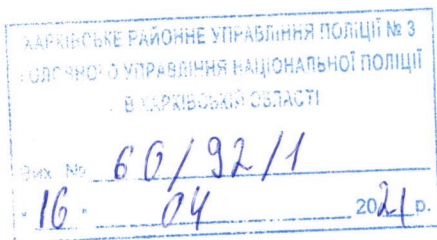 ХАРКІВСЬКЕ РАЙОННЕ УПРАВЛІННЯ ПОЛІЦІЇ № 3
ГОЛОВНОГО УПРАВЛІННЯ НАЦІОНАЛЬНОЇ ПОЛІЦІЇ
В ХАРКІВСЬКІЙ ОБЛАСТІ
Вих. № 60/92/1
"16" 04 2021 р.